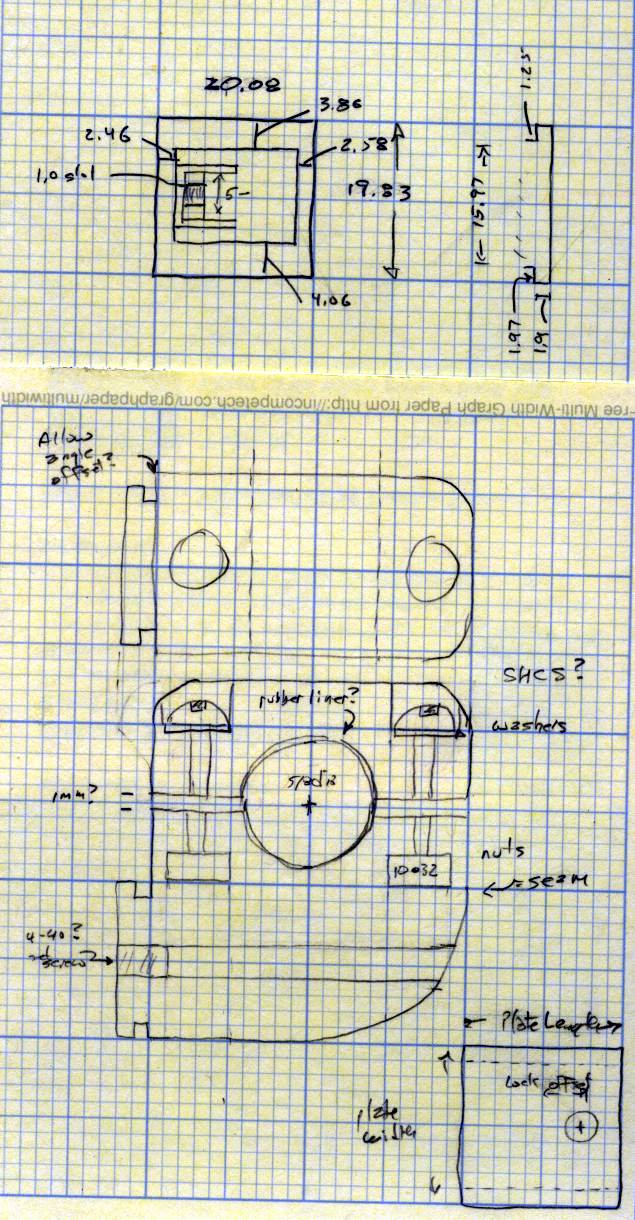 20.08
3.86
1.25
2.46
2.58
1.0 slot
5-
19.83
15.97
4.06
1.97
1.9
ree Multi-Width Graph Paper from http://incompetech.com/graphpaper/multiwidth
Allow
angle
offset?
SHCS?
rubber liner?
washers
1mm?
nuts
10-32
seam
4-40?
screw?
Plate Length
Lock offset
plate
width